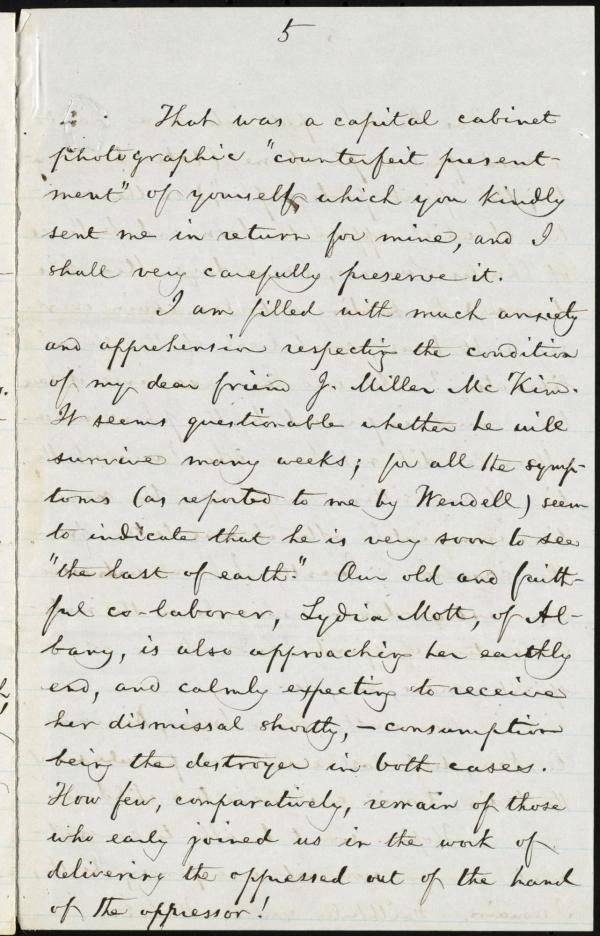 5
That was a capital cabinet
photographic "counterfeit present-
ment" of yourself, which you kindly
sent me in return for mine, and I
shall very carefully preserve it.
I am filled with much anxiety
and apprehension respecting the condition
of my dear friend J. Miller McKim.
It seems questionable whether he will
survive many weeks; for all the symp-
toms (as reported to me by Wendell) seem
to indicate that he is very soon to see
"the last of earth." Our old and faith-
ful co-laborer, Lydia Mott, of Al-
bany, is also approaching her earthly
end, and calmly expecting to receive
her dismissal shortly, — consumption
being the destroyer in both cases.
How few, comparatively, remain of those
who early joined us in the work of
delivering the oppressed out of the hand
of the oppressor!